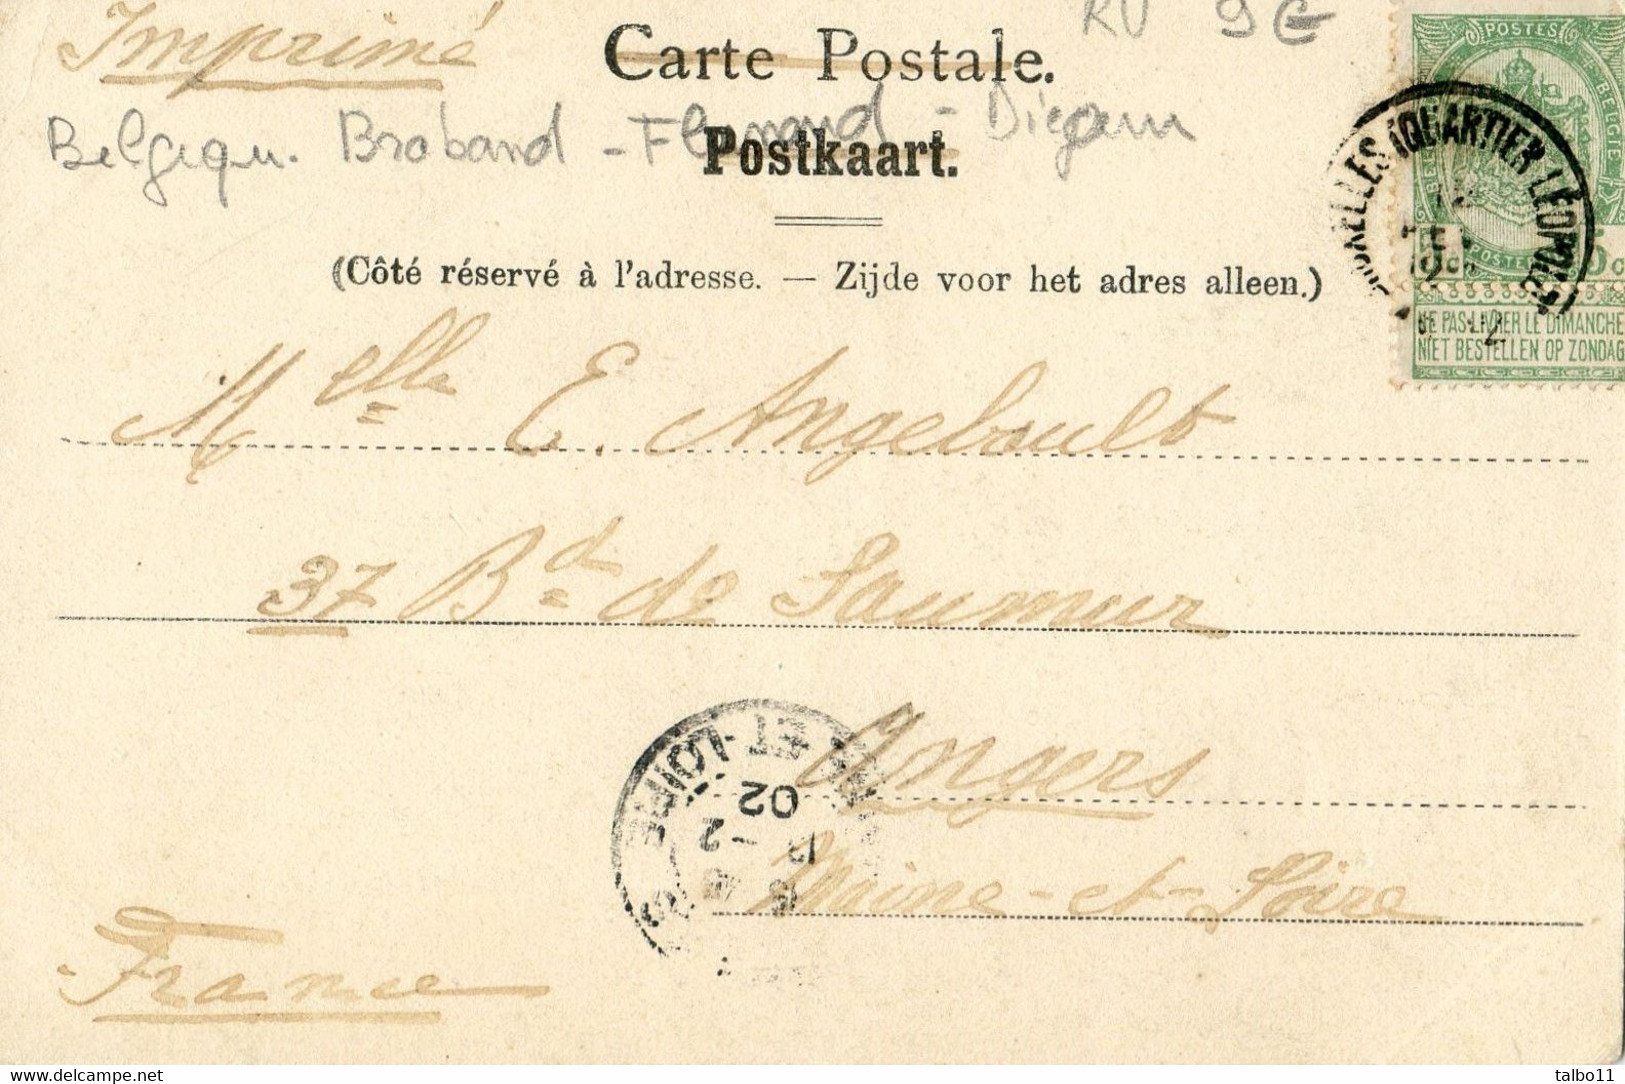 Imprimé
RV 9€
Carte Postale.
Belgique. Braband - Flamand - Diegem
Postkaart.
(Côté réservé à l'adresse. — Zijde voor het adres alleen.)
POSTES
BELGIE
5c
POSTE
QUARTIER LÉOPOLD)
NE PAS LIVRER LE DIMANCHE
NIET BESTELLEN OP ZONDAG
Melle E. Angeboult
37 Bd de Saumur
Angers
Maine-et-Loire
France
ET-LOIRE
02
2
Delcampe.net
talbo11